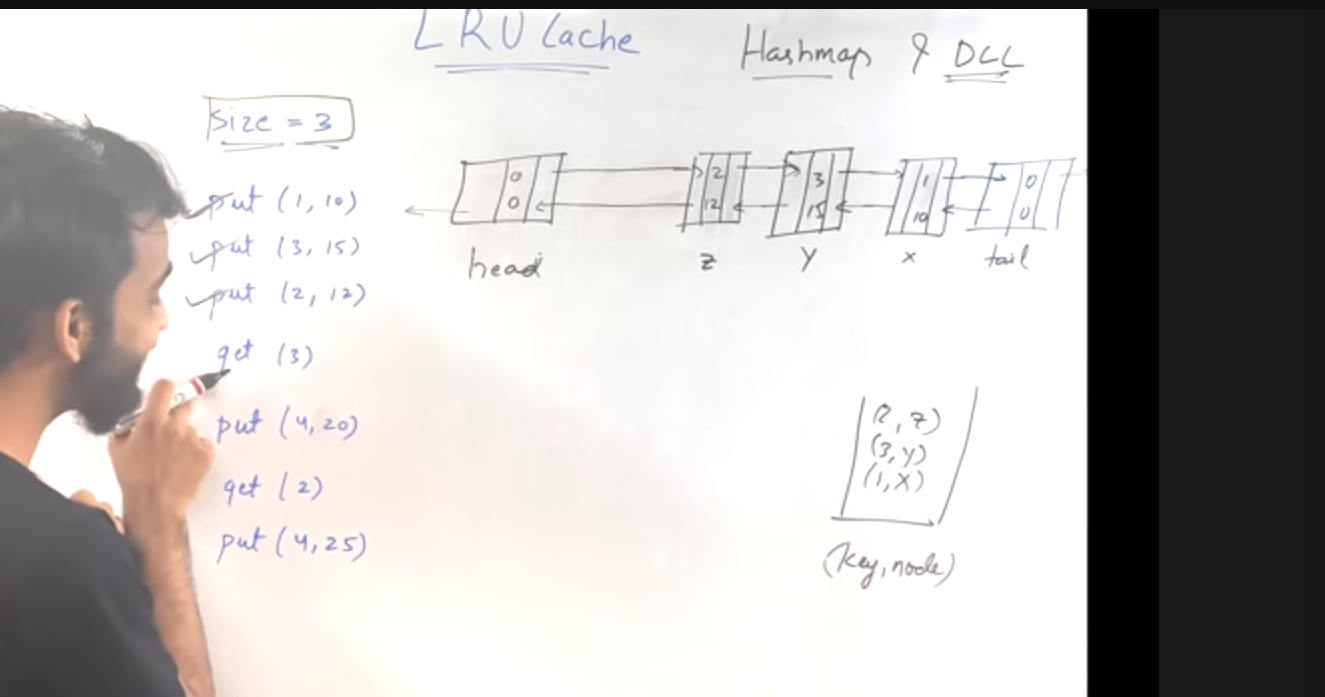 LRU Cache
Hashmap & DLL
Size = 3
put (1, 10)
put (3, 15)
put (2, 12)
get (3)
put (4, 20)
get (2)
put (4, 25)
0 2 3 1 0
0 12 15 10 0
head z y x tail
(2, z)
(3, y)
(1, x)
(key, node)